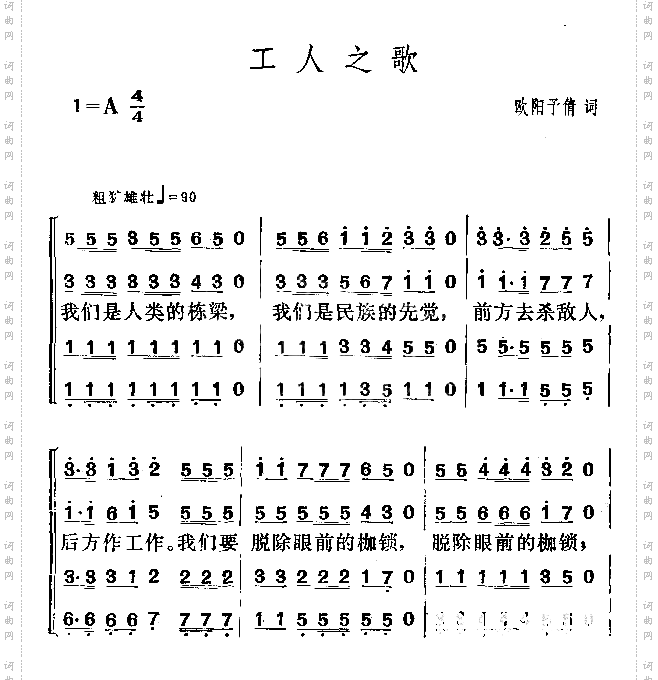 工人之歌
1=A 4/4
欧阳予倩 词
粗犷雄壮♩=90
5 5 5 3 5 5 6 5 0 | 5 5 6 i i 2 3 3 0 | 3 3· 3 2 5 5
3 3 3 3 3 3 4 3 0 | 3 3 3 5 6 7 i i 0 | i i· i 7 7 7
我们是人类的栋梁， 我们是民族的先觉， 前方去杀敌人，
1 1 1 1 1 1 1 1 0 | 1 1 1 3 3 4 5 5 0 | 5 5· 5 5 5 5
1 1 1 1 1 1 1 1 0 | 1 1 1 1 3 5 1 1 0 | 1 1· 1 5 5 5
3· 3 1 3 2 5 5 5 | i i 7 7 7 6 5 0 | 5 5 4 4 4 3 2 0
i· i 6 i 5 5 5 5 | 5 5 5 5 5 4 3 0 | 5 5 6 6 6 i 7 0
后方作工作。我们要 脱除眼前的枷锁， 脱除眼前的枷锁；
3· 3 3 1 2 2 2 2 | 3 3 2 2 2 1 7 0 | 1 1 1 1 1 3 5 0
6· 6 6 6 5 7 7 7 | 1 1 5 5 5 5 5 0
词曲网
词曲网
词曲网
词曲网
词曲网
词曲网
词曲网
词曲网
词曲网
词曲网
词曲网
词曲网